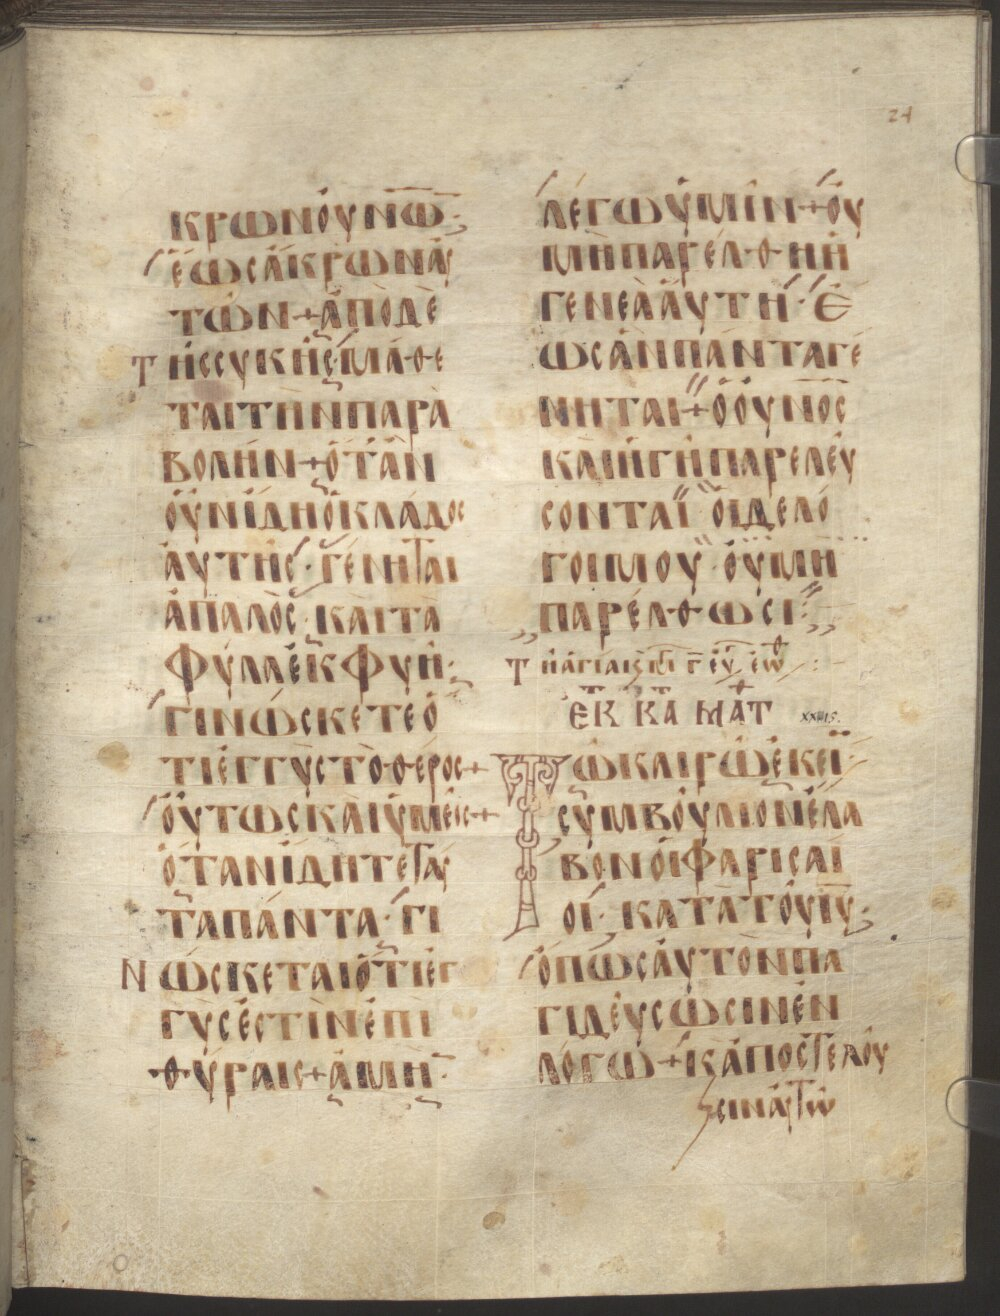 24
ΚΡΩΝΟΥΝΩ͞
ΕΩΣΑΚΡΩΝΑΥ
ΤΩΝ+ΑΠΟΔΕ
ΤΗΣΣΥΚΗΣΜΑΘΕ
ΤΑΙΤΗΝΠΑΡΑ
ΒΟΛΗΝ+ΟΤΑΝ
ΟΥΝΙΔΗΟΚΛΑΔΟΣ
ΑΥΤΗΣ·ΓΕΝΗΤΑΙ
ΑΠΑΛΟΣ·ΚΑΙΤΑ
ΦΥΛΛΕΚΦΥΗ·
ΓΙΝΩΣΚΕΤΕΟ
ΤΙΕΓΓΥΣΤΟΘΕΡΟΣ+
ΟΥΤΩΣΚΑΙΥΜΕΙΣ+
ΟΤΑΝΙΔΗΤΕΤΑΥ
ΤΑΠΑΝΤΑ·ΓΙ
ΝΩΣΚΕΤΑΙΟΤΙΕΓ
ΓΥΣΕΣΤΙΝΕΠΙ
ΘΥΡΑΙΣ+ΑΜΗ͞
ΛΕΓΩΥΜΙΝ+ΟΥ
ΜΗΠΑΡΕΛΘΗΗ
ΓΕΝΕΑΑΥΤΗ·Ε
ΩΣΑΝΠΑΝΤΑΓΕ
ΝΗΤΑΙ+ΟΟΥΝΟΣ
ΚΑΙΗΓΗΠΑΡΕΛΕΥ
ΣΟΝΤΑΙ ΟΙΔΕΛΟ
ΓΟΙΜΟΥ·ΟΥΜΗ
ΠΑΡΕΛΘΩΣΙ·
ΕΚ ΚΑ ΜΑΤ XXIIIS.
ΤΩΚΑΙΡΩΕΚΕΙ·
ΣΥΜΒΟΥΛΙΟΝΕΛΑ
ΒΟΝΟΙΦΑΡΙΣΑΙ
ΟΙ·ΚΑΤΑΤΟΥΙΥ·
ΟΠΩΣΑΥΤΟΝΠΑ
ΓΙΔΕΥΣΩΣΙΝΕΝ
ΛΟΓΩ+ΚΑΠΟΣΤΕΛΟΥ
ΣΙΝΑΥΤΩ